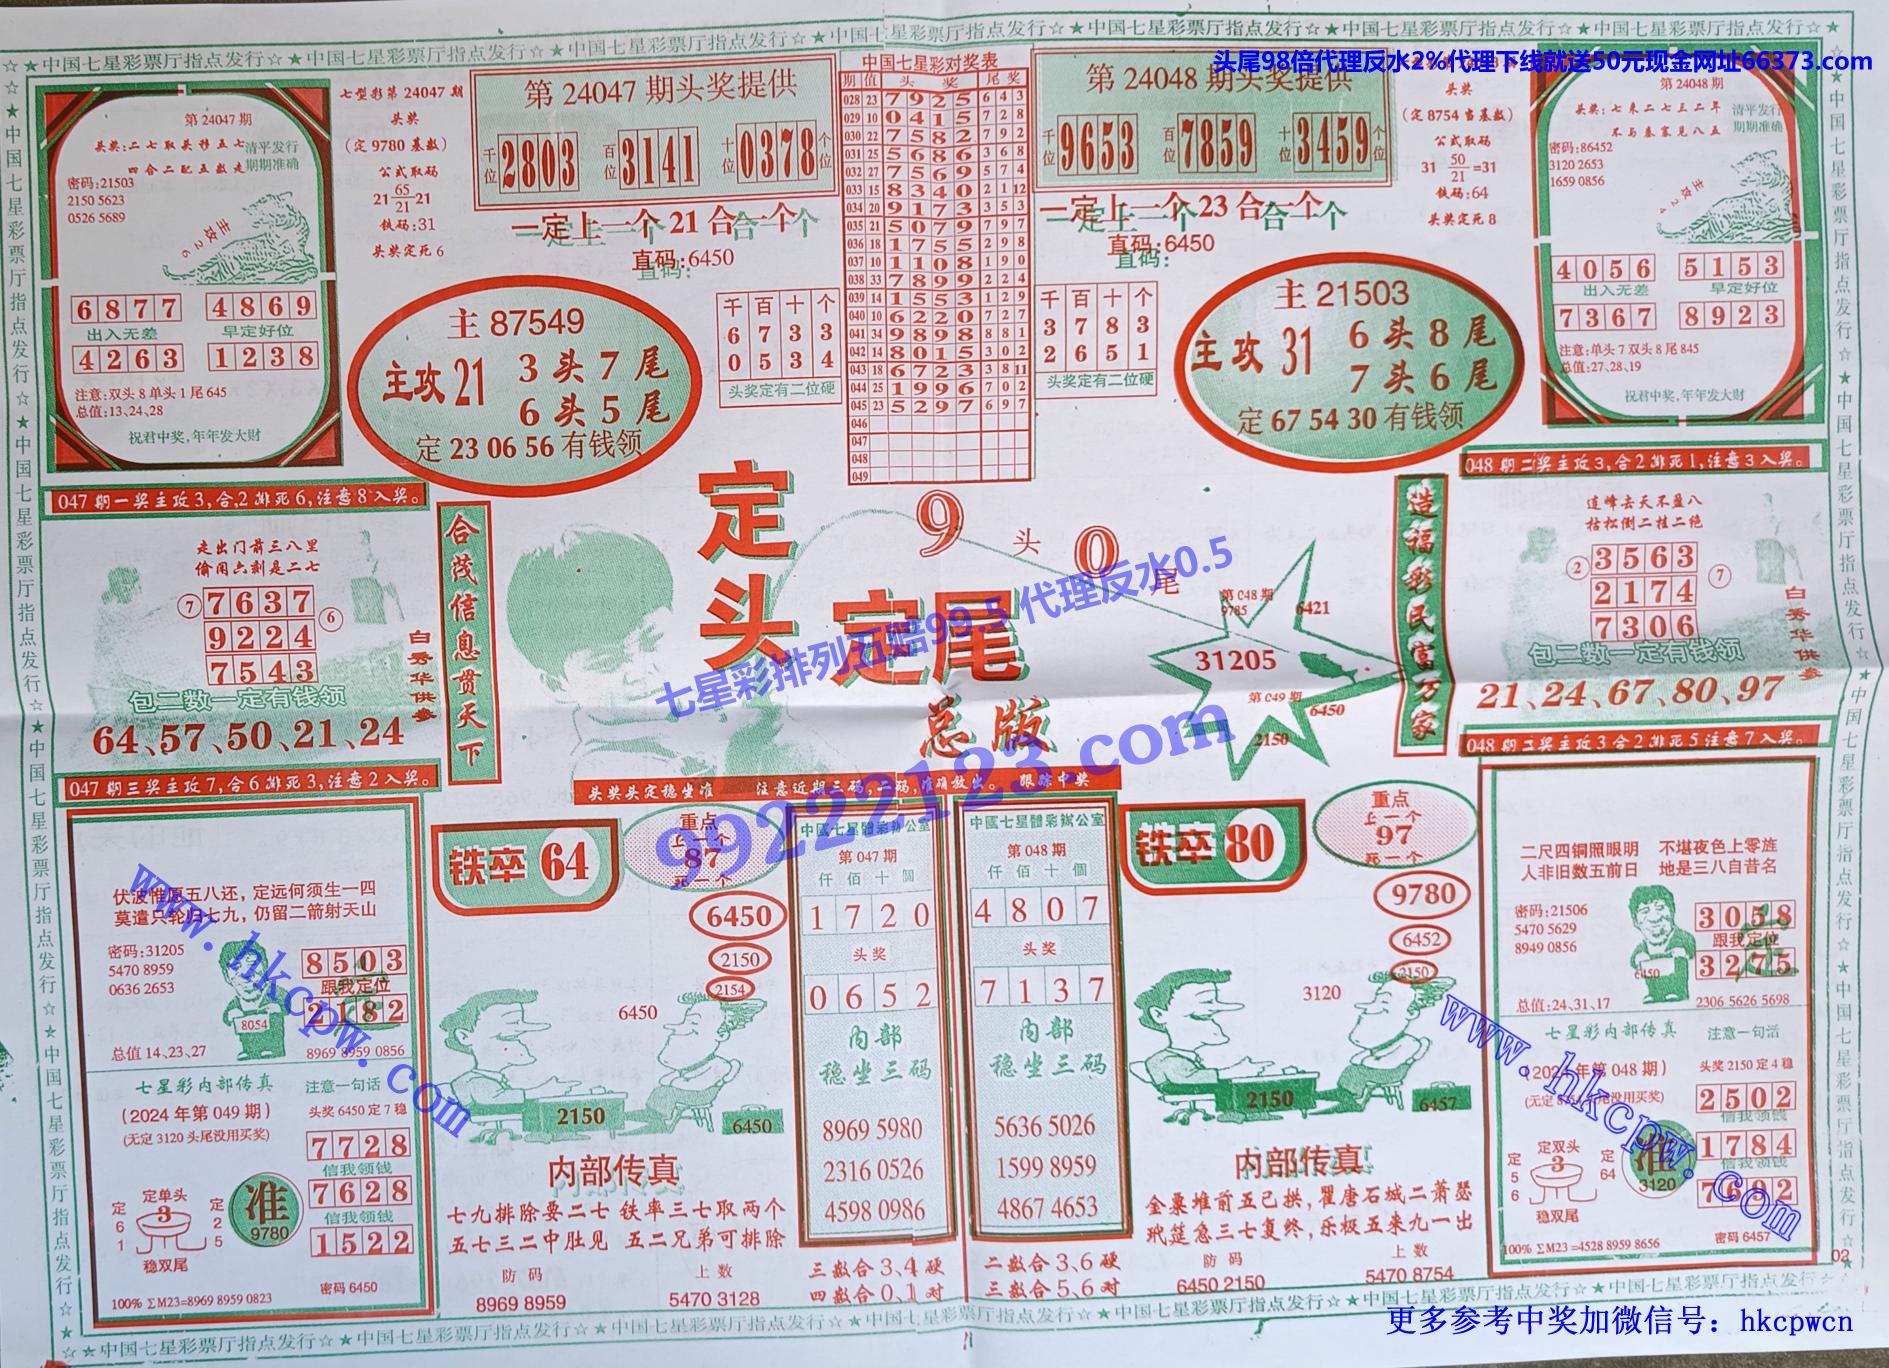 ☆★中国七星彩票厅指点发行☆★中国七星彩票厅指点发行☆★中国七星彩票厅指点发行☆★中国七星彩票厅指点发行☆
头尾98倍代理反水2%代理下线就送50元现金网址66373.com
第 24047 期
头奖:二七取头移五七
四合二配五数走
清平发行
期期准确
密码:21503
2150 5623
0526 5689
主攻26
6877 4869
出入无差 早定好位
4263 1238
注意:双头 8 单头 1 尾 645
总值:13、24、28
祝君中奖,年年发大财
七型彩第 24047 期
头奖
(定 9780 基数)
公式取码
21 65/21 =21
铁码:31
头奖定死 6
第 24047 期头奖提供
千位 2803 百位 3141 十位 0378 个位
一定上一个 21 合一个
直码:6450
主 87549
主攻 21
3 头 7 尾
6 头 5 尾
定 23 06 56 有钱领
千 百 十 个
6 7 3 3
0 5 3 4
头奖定有二位硬
中国七星彩对奖表
期 值 头 奖 尾 奖
028 23 7925 643
029 10 0415 728
030 22 7582 792
031 25 5686 368
032 27 7569 574
033 15 8340 2 1 12
034 20 9173 353
035 21 5079 797
036 18 1755 298
037 10 1108 190
038 33 7899 224
039 14 1553 129
040 10 6220 727
041 34 9898 881
042 14 8015 302
043 18 6723 3 8 11
044 25 1996 702
045 23 5297 697
046
047
048
049
第 24048 期头奖提供
千位 9653 百位 7859 十位 3459 个位
一定上一个 23 合一个
直码:6450
千 百 十 个
3 7 8 3
2 6 5 1
头奖定有二位硬
主 21503
主攻 31
6 头 8 尾
7 头 6 尾
定 67 54 30 有钱领
头奖
(定 8754 当基数)
公式取码
31 50/21 =31
铁码:64
头奖定死 8
第 24048 期
头奖:七来二七三二年
不与秦塞见八五
清平发行
期期准确
密码:86452
3120 2653
1659 0856
主攻24
4056 5153
出入无差 早定好位
7367 8923
注意:单头 7 双头 8 尾 845
总值:27、28、19
祝君中奖,年年发大财
047 期一奖主攻 3,合,2 排死 6,注意 8 入奖。
走出门前三八里
偷闲六剩是二七
7 7637 6
9224
7543
包二数一定有钱领
64、57、50、21、24
白秀华供参
合茂信息贯天下
定头
定尾
总版
9 头 0 尾
七星彩排列五赔99.5 代理反水0.5
99222123.com
第 048 期
9785
6421
31205
第 049 期
6450
2150
造福彩民富万家
048 期二奖主攻 3,合 2 排死 1,注意 3 入奖。
连峰去天不盈八
枯松倒二挂二绝
2 3563 7
2174
7306
包二数一定有钱领
21、24、67、80、97
白秀华供参
047 期三奖主攻 7,合 6 排死 3,注意 2 入奖。
头奖头定稳坐准 注意近期三码,二码,准确放出。 跟踪中奖
048 期二奖主攻 3 合 2 排死 5 注意 7 入奖。
伏波惟愿五八还,定远何须生一四
莫遣只轮归七九,仍留二箭射天山
密码:31205
5470 8959
0636 2653
8503
跟我定位
2182
8054
总值 14、23、27
8969 8959 0856
七星彩内部传真 注意一句话
(2024 年第 049 期)
头奖 6450 定 7 稳
(无定 3120 头尾没用买奖)
7728
信我领钱
7628
信我领钱
1522
定单头
3
稳双尾
定61
定25
准
9780
密码 6450
100% ∑M23=8969 8959 0823
www.hkcpw.com
铁卒 64
重点
上一个
87
死一个
6450
2150
2154
6450
2150
6450
内部传真
七九排除要二七 铁率三七取两个
五七三二中肚见 五二兄弟可排除
防 码 上 数
8969 8959 5470 3128
中國七星體彩辦公室
第 047 期
仟 佰 十 個
1720
头 奖
0652
内部
稳坐三码
8969 5980
2316 0526
4598 0986
三数合 3、4 硬
四数合 0、1 对
中國七星體彩辦公室
第 048 期
仟 佰 十 個
4807
头 奖
7137
内部
稳坐三码
5636 5026
1599 8959
4867 4653
二数合 3、6 硬
三数合 5、6 对
铁卒 80
重点
上一个
97
死一个
9780
6452
2150
3120
2150
6457
内部传真
金粟堆前五已拱,瞿唐石城二萧瑟
玳筵急三七复终,乐极五来九一出
防 码 上 数
6450 2150 5470 8754
二尺四铜照眼明 不堪夜色上零旌
人非旧数五前日 地是三八自昔名
密码:21506
5470 5629
8949 0856
3058
跟我定位
3275
6450
总值:24、31、17
2306 5626 5698
七星彩内部传真 注意一句话
(2024 年第 048 期)
头奖 2150 定 4 稳
2502
信我领钱
1784
信我领钱
7692
定双头
3
稳双尾
定56
定64
准
3120
密码 6457
100% ∑M23=4528 8959 8656
www.hkcpw.com
02
更多参考中奖加微信号：hkcpwcn
☆★中国七星彩票厅指点发行☆★中国七星彩票厅指点发行☆★中国七星彩票厅指点发行☆★中国七星彩票厅指点发行☆